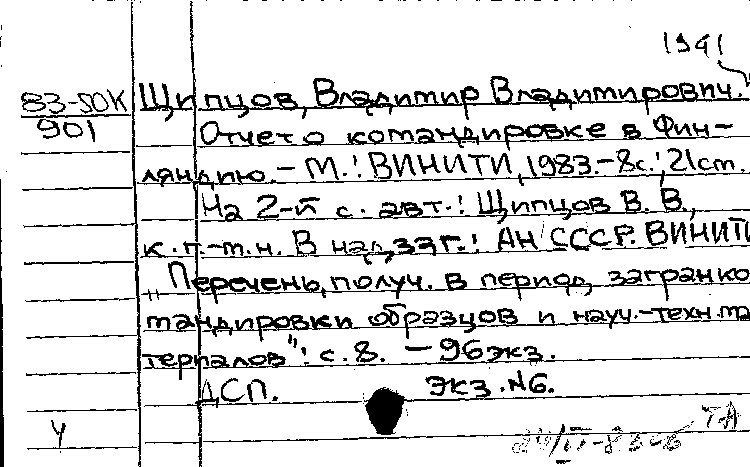 1941
83-50К Щипцов, Владимир Владимирович.
901 Отчет о командировке в Фин-
ляндию. – М.: ВИНИТИ, 1983. – 8с.; 21см.
На 2-й с. авт.: Щипцов В. В.,
к.г.-м.н. В надзаг.: АН СССР. ВИНИТИ
"Перечень получ. в период загранко
мандировки образцов и науч.-техн. ма
териалов": с. 8. – 96экз.
ДСП. экз. №6.
У